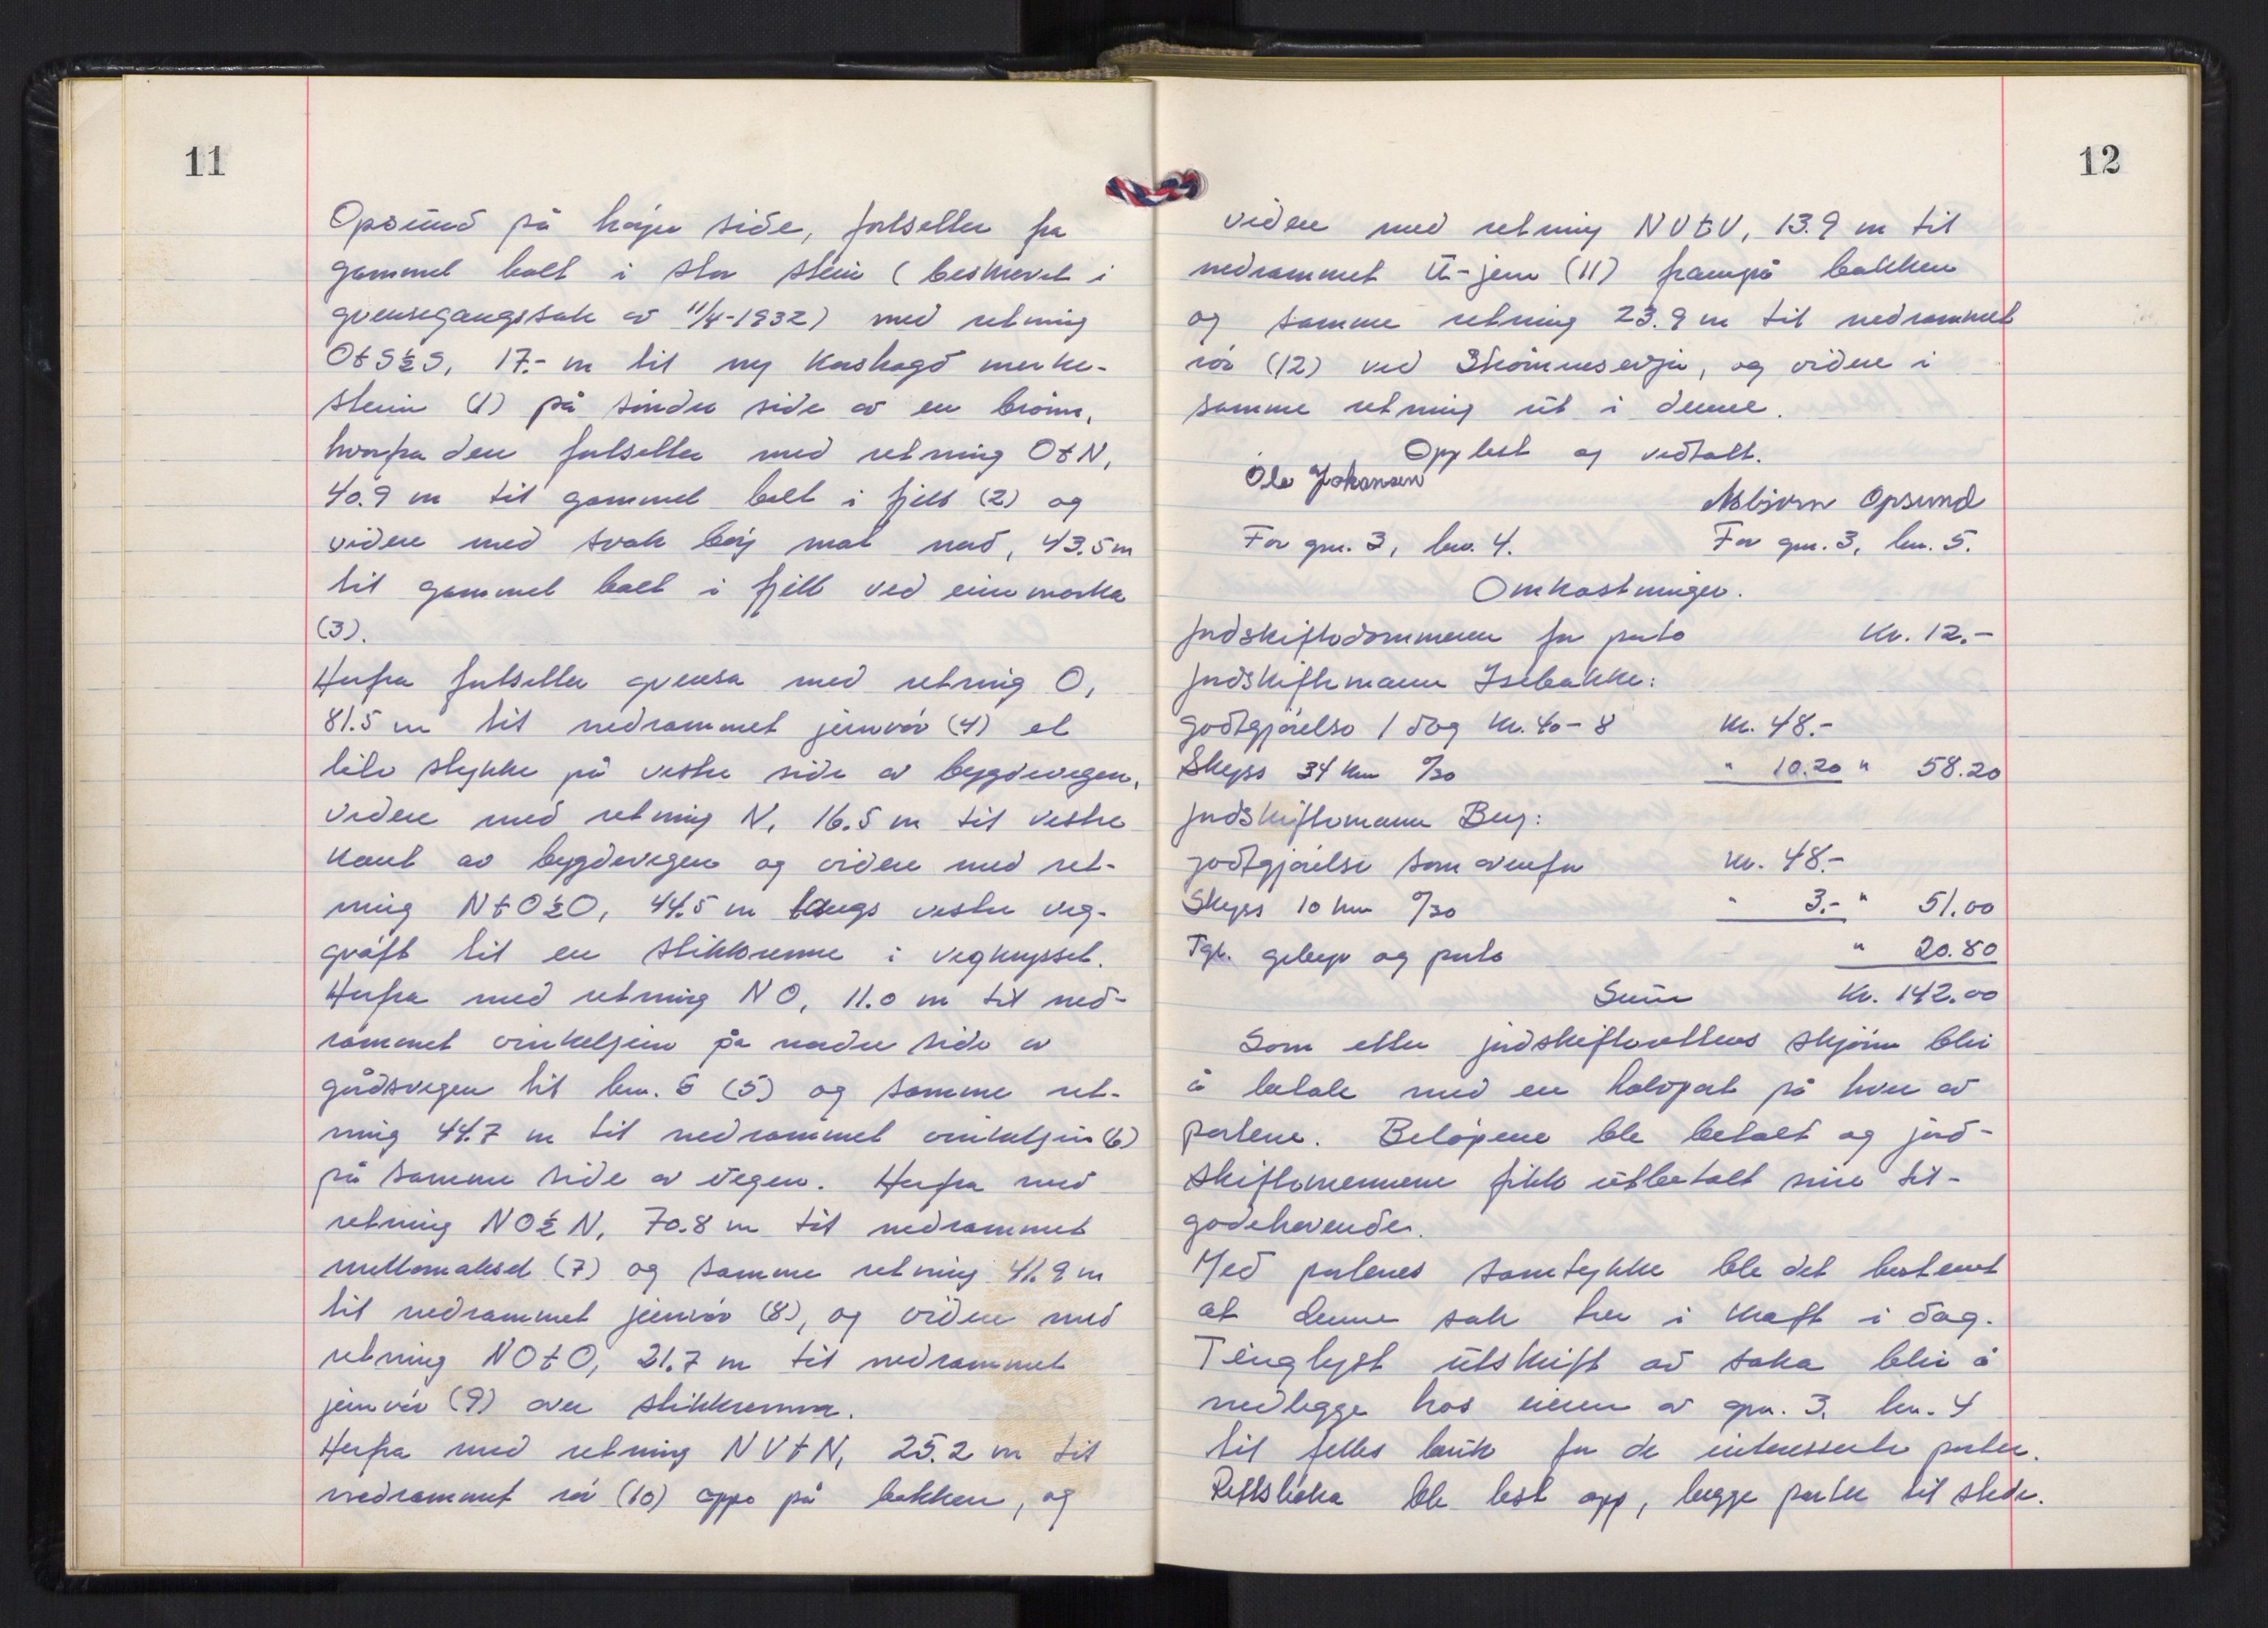 11
Opsund på høyre side, fortsetter fra
gammel bolt i stor stein (beskrevet i
grensegangssak av 11/4-1932) med retning
OtS½S, 17.- m til ny korshogd merke-
stein (1) på søndre side av en brønn,
hvorfra den fortsetter med retning OtN,
40.9 m til gammel bolt i fjell (2) og
videre med svak bøy mot nord, 43.5 m
til gammel bolt i fjell ved innmarka
(3).
Herfra fortsetter grensa med retning O,
81.5 m til nedrammet jernrør (4) et
lite stykke på vestre side av bygdevegen,
videre med retning N, 16.5 m til vestre
kant av bygdevegen og videre med ret-
ning NtO½O, 44.5 m langs vestre veg-
grøft til en stikkrenne i vegkrysset.
Herfra med retning NO, 11.0 m til ned-
rammet vinkeljern på nordre side av
gårdsvegen til bnr. 5 (5) og samme ret-
ning 44.7 m til nedrammet vinkeljern (6)
på samme side av vegen. Herfra med
retning NO½N, 70.8 m til nedrammet
mellomaksel (7) og samme retning 41.9 m
til nedrammet jernrør (8), og videre med
retning NOtO, 21.7 m til nedrammet
jernrør (9) over stikkrenna.
Herfra med retning NVtN, 25.2 m til
nedrammet rør (10) oppe på bakken, og
12
videre med retning NVtV, 13.9 m til
nedrammet U-jern (11) frampå bakken
og samme retning 23.9 m til nedrammet
rør (12) ved , og videre i
samme retning ut i denne.
Opplest og vedtatt.
Ole Johansen
Asbjørn Opsund
For gnr. 3, bnr. 4.
For gnr. 3, bnr. 5.
Omkostninger.
Jordskiftedommeren for porto Kr. 12.-
Jordskiftemann Isebakke:
godtgjørelse 1 dag Kr. 40-8 Kr. 48.-
Skyss 34 km º/30 " 10.20 " 58.20
Jordskiftemann Berg:
godtgjørelse som ovenfor Kr. 48.-
Skyss 10 km º/30 " 3.- " 51.00
Tgl. gebyr og porto " 20.80
Sum Kr. 142.00
Som etter jordskifterettens skjønn blir
å betale med en halvpart på hver av
partene. Beløpene ble betalt og jord-
skiftemennene fikk utbetalt sine til-
godehavender.
Med partenes samtykke ble det bestemt
at denne sak trer i kraft i dag.
Tinglyst utskrift av saka blir å
nedlegge hos eieren av gnr. 3. bnr. 4
til felles bruk for de interesserte parter.
Rettsboka ble lest opp, begge parter til stede.